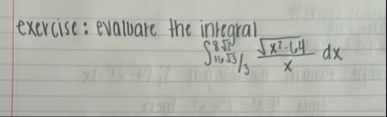 exercise: evaluate the integral
∫_{16√3/3}^{8√2} √(x²-64)/x dx